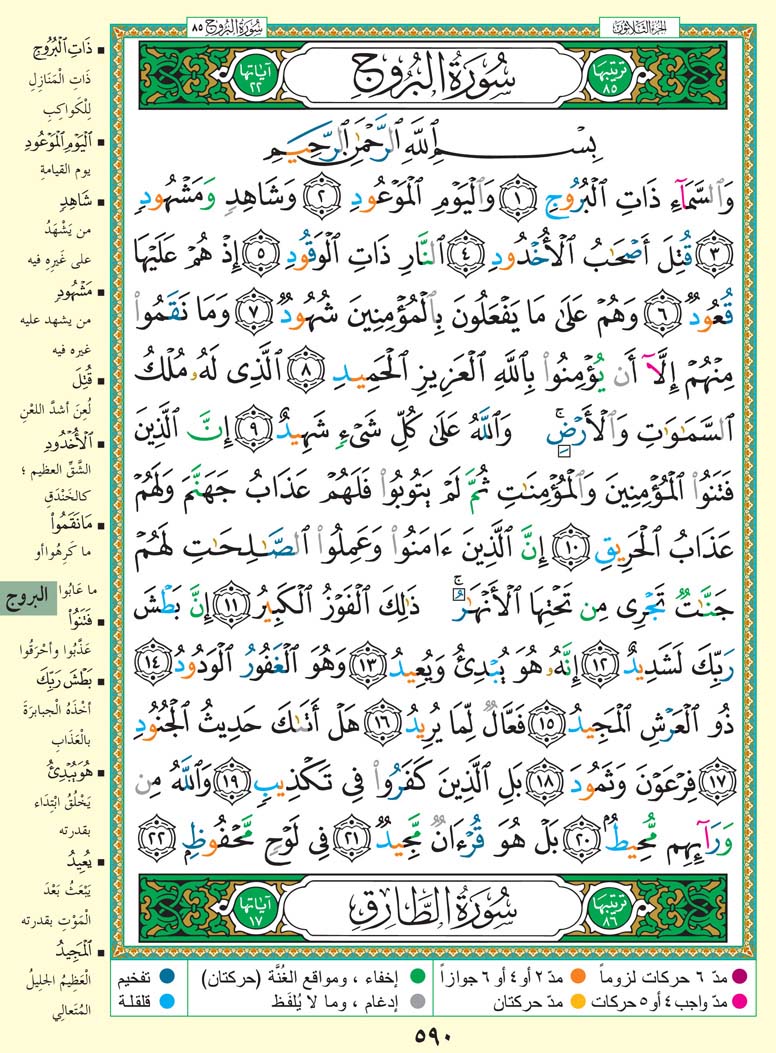 الجزء الثلاثون
سورة البروج ٨٥
ترتيبها ٨٥ سُورَةُ البُرُوجِ آياتها ٢٢
بِسْمِ ٱللَّهِ ٱلرَّحْمَٰنِ ٱلرَّحِيمِ
وَٱلسَّمَآءِ ذَاتِ ٱلْبُرُوجِ ١ وَٱلْيَوْمِ ٱلْمَوْعُودِ ٢ وَشَاهِدٍ وَمَشْهُودٍ
٣ قُتِلَ أَصْحَٰبُ ٱلْأُخْدُودِ ٤ ٱلنَّارِ ذَاتِ ٱلْوَقُودِ ٥ إِذْ هُمْ عَلَيْهَا
قُعُودٌ ٦ وَهُمْ عَلَىٰ مَا يَفْعَلُونَ بِٱلْمُؤْمِنِينَ شُهُودٌ ٧ وَمَا نَقَمُوا۟
مِنْهُمْ إِلَّآ أَن يُؤْمِنُوا۟ بِٱللَّهِ ٱلْعَزِيزِ ٱلْحَمِيدِ ٨ ٱلَّذِى لَهُۥ مُلْكُ
ٱلسَّمَٰوَٰتِ وَٱلْأَرْضِ ۚ وَٱللَّهُ عَلَىٰ كُلِّ شَىْءٍ شَهِيدٌ ٩ إِنَّ ٱلَّذِينَ
فَتَنُوا۟ ٱلْمُؤْمِنِينَ وَٱلْمُؤْمِنَٰتِ ثُمَّ لَمْ يَتُوبُوا۟ فَلَهُمْ عَذَابُ جَهَنَّمَ وَلَهُمْ
عَذَابُ ٱلْحَرِيقِ ١٠ إِنَّ ٱلَّذِينَ ءَامَنُوا۟ وَعَمِلُوا۟ ٱلصَّٰلِحَٰتِ لَهُمْ
جَنَّٰتٌ تَجْرِى مِن تَحْتِهَا ٱلْأَنْهَٰرُ ۚ ذَٰلِكَ ٱلْفَوْزُ ٱلْكَبِيرُ ١١ إِنَّ بَطْشَ
رَبِّكَ لَشَدِيدٌ ١٢ إِنَّهُۥ هُوَ يُبْدِئُ وَيُعِيدُ ١٣ وَهُوَ ٱلْغَفُورُ ٱلْوَدُودُ ١٤
ذُو ٱلْعَرْشِ ٱلْمَجِيدُ ١٥ فَعَّالٌ لِّمَا يُرِيدُ ١٦ هَلْ أَتَىٰكَ حَدِيثُ ٱلْجُنُودِ
١٧ فِرْعَوْنَ وَثَمُودَ ١٨ بَلِ ٱلَّذِينَ كَفَرُوا۟ فِى تَكْذِيبٍ ١٩ وَٱللَّهُ مِن
وَرَآئِهِم مُّحِيطٌۢ ٢٠ بَلْ هُوَ قُرْءَانٌ مَّجِيدٌ ٢١ فِى لَوْحٍ مَّحْفُوظٍۭ ٢٢
ترتيبها ٨٦ سُورَةُ الطَّارِقِ آياتها ١٧
ذَاتِ ٱلْبُرُوجِ
ذَاتِ الْمَنَازِلِ
لِلْكَواكِبِ
ٱلْيَوْمِ ٱلْمَوْعُودِ
يوم القيامةِ
شَاهِدٍ
من يَشْهَدُ
على غَيرِهِ فيه
مَشْهُودٍ
من يشهد عليه
غيره فيه
قُتِلَ
لُعِنَ أشدَّ اللعْنِ
ٱلْأُخْدُودِ
الشَّقِّ العظيم ؛
كالخَنْدَقِ
مَا نَقَمُوا۟
ما كَرِهُوا أو
ما عَابُوا
البروج
فَتَنُوا۟
عَذَّبُوا وأحْرَقُوا
بَطْشَ رَبِّكَ
أخْذَهُ الجبابرَةَ
بالْعَذَابِ
هُوَ يُبْدِئُ
يَخْلُقُ ابْتِدَاء
بقدرته
يُعِيدُ
يَبْعَثُ بَعْدَ
الْمَوْتِ بقدرته
ٱلْمَجِيدُ
الْعَظِيمُ الجليلُ
المُتَعالِي
مدّ ٦ حركات لزوماً
مدّ ٢ أو ٤ أو ٦ جوازاً
إخفاء ، ومواقع الغُنَّة (حركتان)
تفخيم
مدّ واجب ٤ أو ٥ حركات
مدّ حركتان
إدغام ، وما لا يُلفَظ
قلقلة
٥٩٠